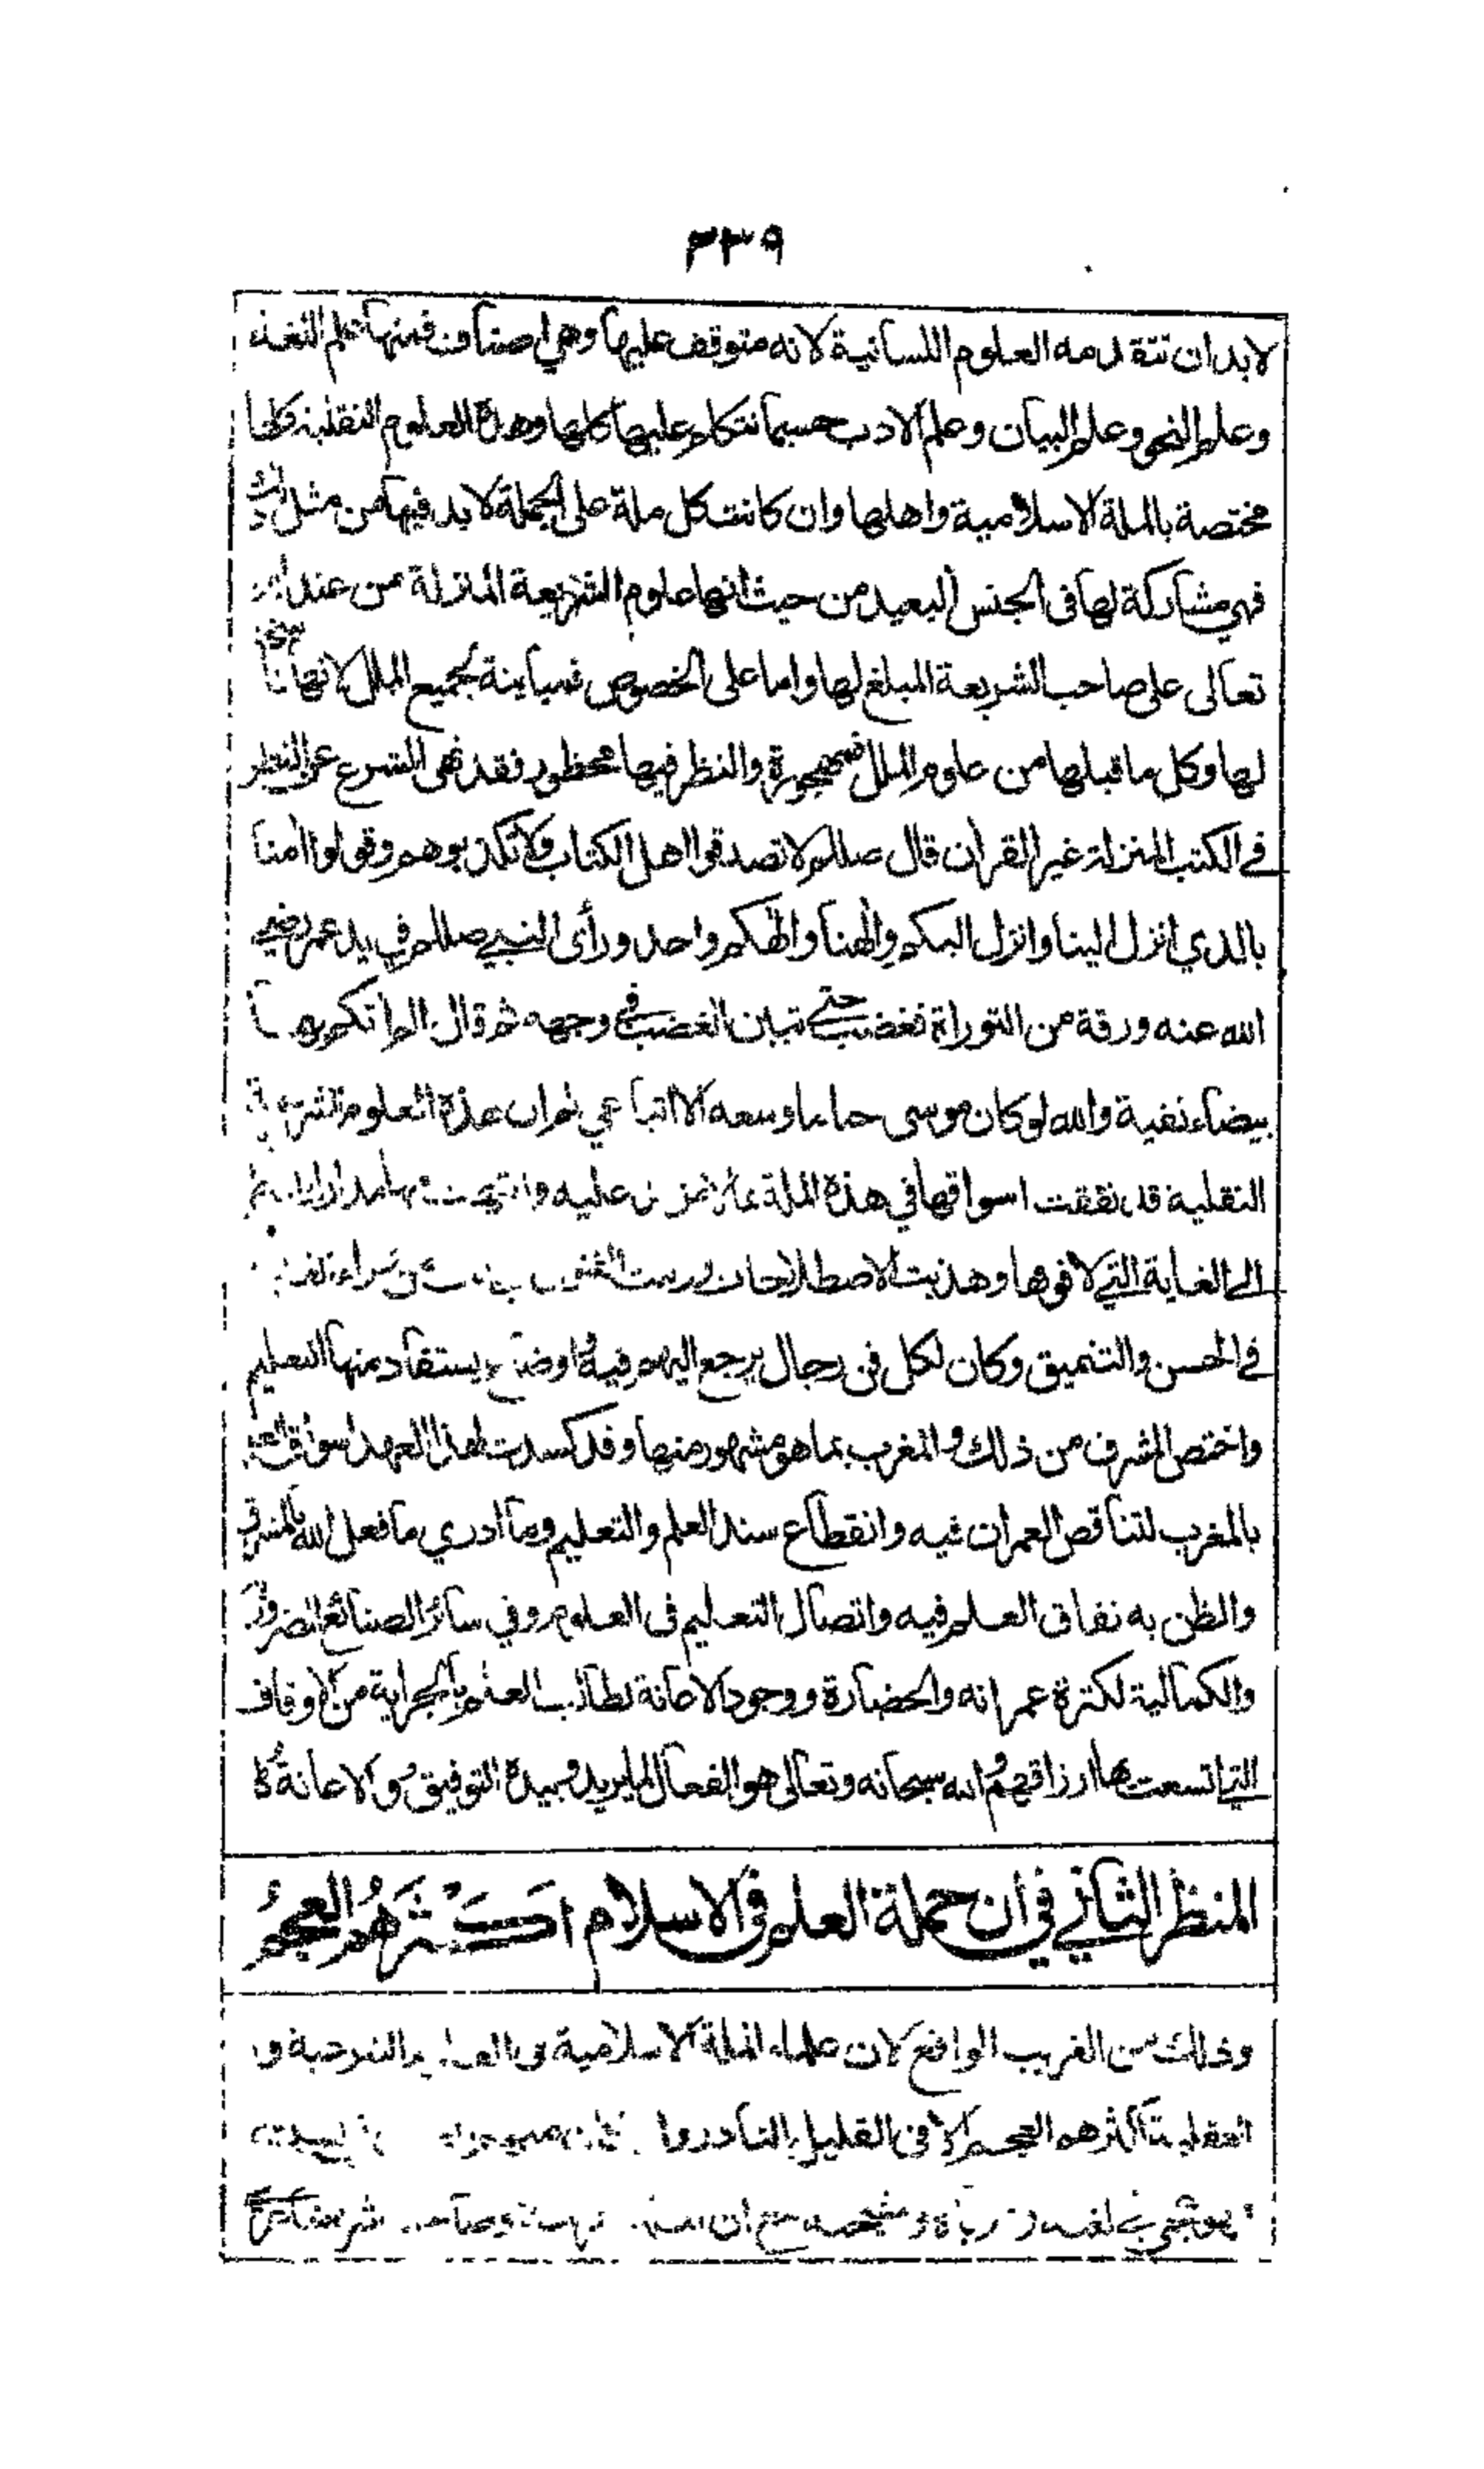 ٣٣٩
لابد ان تتقدمه العلوم اللسانية لانه متوقف عليها وهي اصناف فمنها علم اللغة
وعلم النحو وعلم البيان وعلم الادب حسبما نتكلم عليها كلها وهذه العلوم النقلية كلها
مختصة بالملة الاسلامية واهلها وان كانت كل ملة على الجملة لا بد فيها من مثل ذلك
فهي مشاركة لها في الجنس البعيد من حيث انها علوم الشريعة المنزلة من عند الله
تعالى على صاحب الشريعة المبلغ لها واما على الخصوص فمباينة لجميع الملل لانها ناسخة
لها وكل ما قبلها من علوم الملل فمهجورة والنظر فيها محظور فقد نهى الشرع عن النظر
في الكتب المنزلة غير القران قال صللم لا تصدقوا اهل الكتاب ولا تكذبوهم وقولوا امنا
بالذي انزل الينا وانزل اليكم والهنا والهكم واحد وراى النبي صللم في يد عمر رضي
الله عنه ورقة من التوراة فغضب حتى تبين الغضب في وجهه ثم قال الم اتكم بها
بيضاء نقية والله لو كان موسى حيا ما وسعه الا اتباعي ثم ان هذه العلوم الشرعية
النقلية قد نفقت اسواقها في هذه الملة بما لا مزيد عليه وانتهت فيها مدارك
الى الغاية التي لا فوقها وهذبت الاصطلاحات ورتبت الفنون
في الحسن والتنميق وكان لكل فن رجال يرجع اليهم فيه واوضاع يستفاد منها التعليم
واختص المشرق من ذلك والمغرب بما هو مشهور منها وقد كسدت لهذا العهد اسواق العلم
بالمغرب لتناقص العمران فيه وانقطاع سند العلم والتعليم وما ادري ما فعل الله بالمشرق
والظن به نفاق العلم فيه واتصال التعليم في العلوم وفي سائر الصنائع الضرورية
والكمالية لكثرة عمرانه والحضارة ووجود الاعانة لطالب العلم بالجراية من الاوقاف
التي اتسعت بها ارزاقهم والله سبحانه وتعالى هو الفعال لما يريد وبيده التوفيق والاعانة
المنظر الثاني في ان حملة العلم في الاسلام اكثرهم العجم
وذلك من الغريب الواقع لان علماء الملة الاسلامية في العلوم الشرعية و
العقلية اكثرهم العجم الا في القليل النادر وان